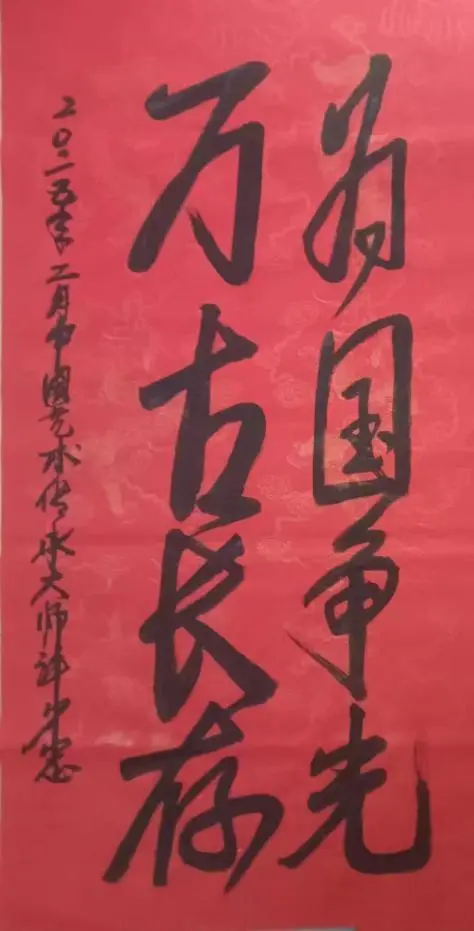 为国争光
万古长存
二〇二五年二月中国艺术传承大师许